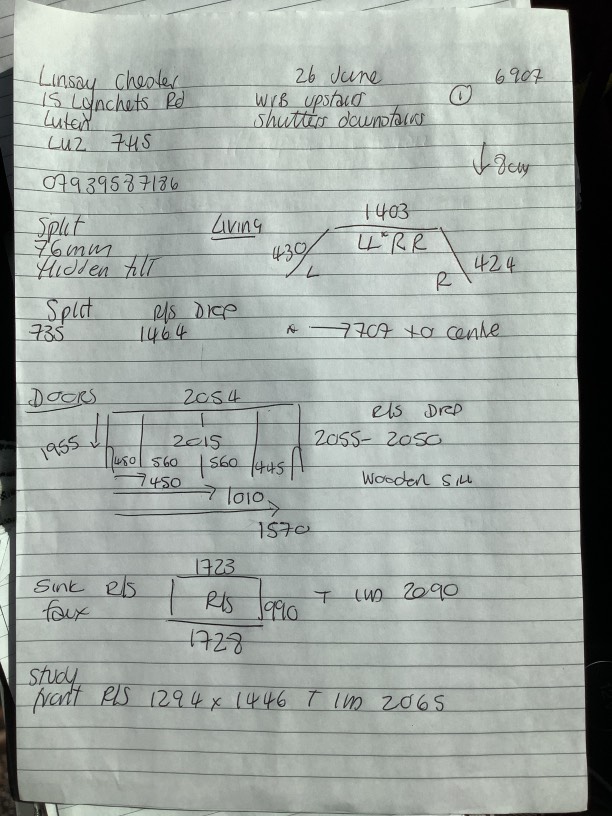 Linsay Chester 26 June 6907
15 Lynchets Rd W/B upstairs ①
Luton shutters downstairs
LU2 7HS
↓ 8cm
07939587186
Split Living 1403
76mm 430 LL*RR 424
Hidden tilt L R
Split R/S Drop
735 1464 * → 707 to centre
DOORS 2054
R/S Drop
1955 ↓ 2015 2055 - 2050
450 560 560 445
→ 450 Wooden sill
→ 1010
→ 1570
1723
Sink R/S R/S 990 T 1m 2090
faux
1728
Study
front R/S 1294 x 1446 T 1m 2065